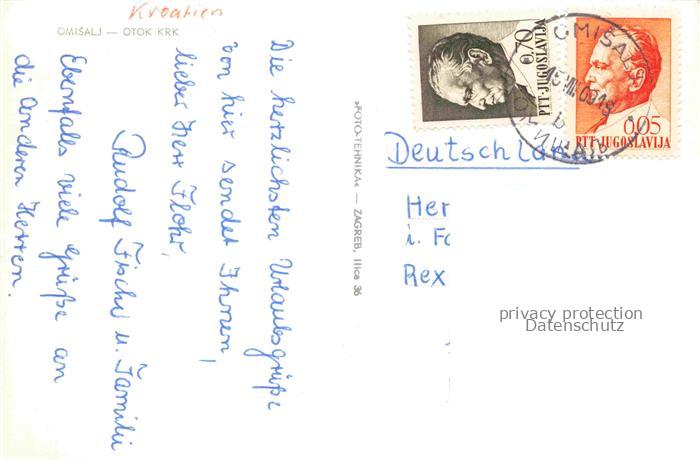 Kroatien
OMIŠALJ — OTOK KRK
Die herzlichsten Urlaubsgrüße
von hier sendet Ihnen,
lieber Herr Flohr,
Rudolf Fische u. Familie
Ebenfalls viele Grüße an
die anderen Herren.
»FOTO-TEHNIKA« — ZAGREB, Ilica 36
0,70
PTT JUGOSLAVIJA
0,05
PTT JUGOSLAVIJA
OMIŠALJ
b
Deutschla
Her
i. Fo
Rex
privacy protection
Datenschutz